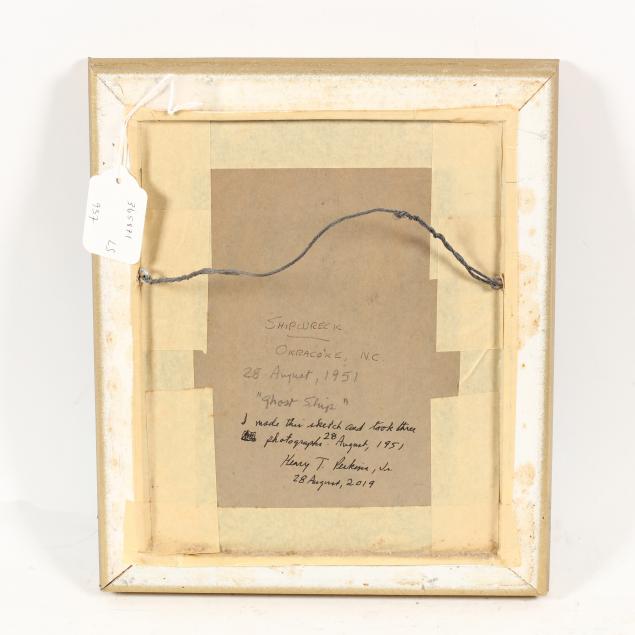 365871
LS
937
SHIPWRECK
OKRACOKE, N.C.
28 August, 1951
"Ghost Ship"
I made this sketch and took three
photographs 28 August, 1951
Henry T. Perkins, Jr.
28 August, 2019